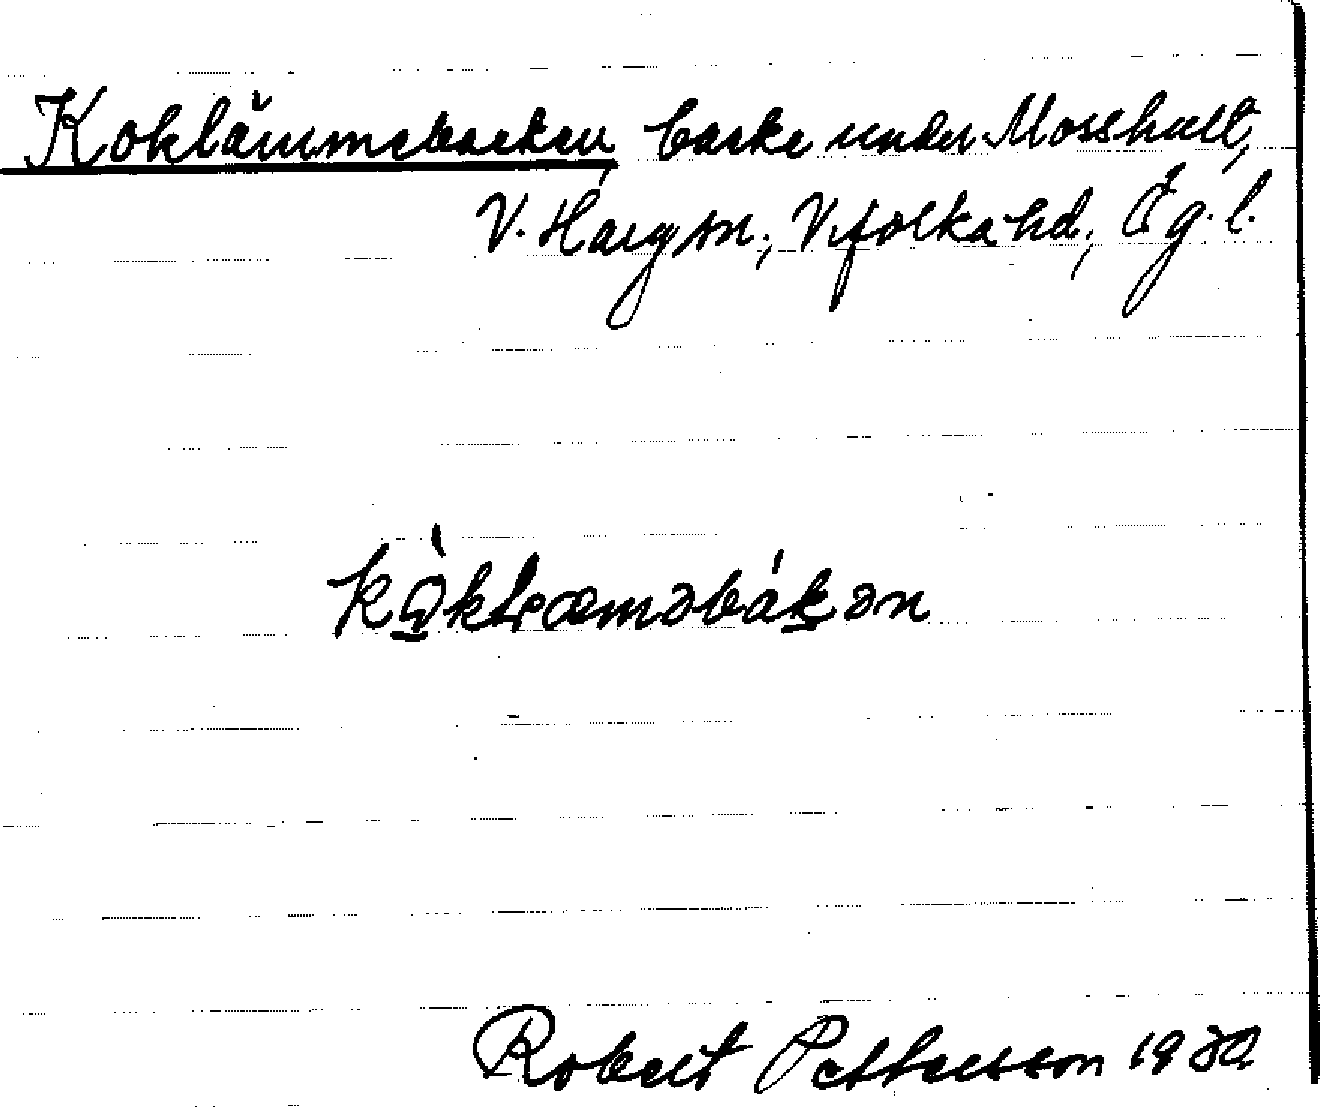 Koklämmebacken backe under Mosshult,
V. Harg sn., Vifolka hd, Ög. l.
Robert Pettersson 1930